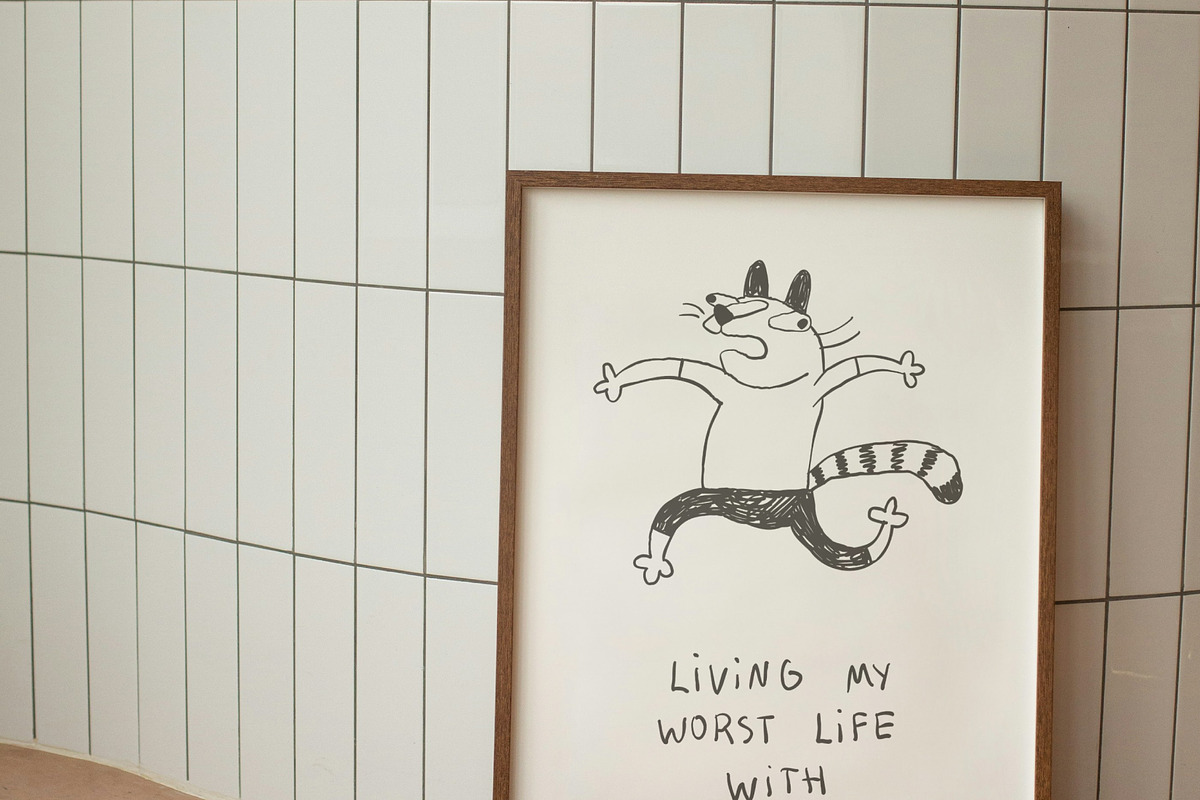 LiViNG MY
WORST LiFE
WiTH